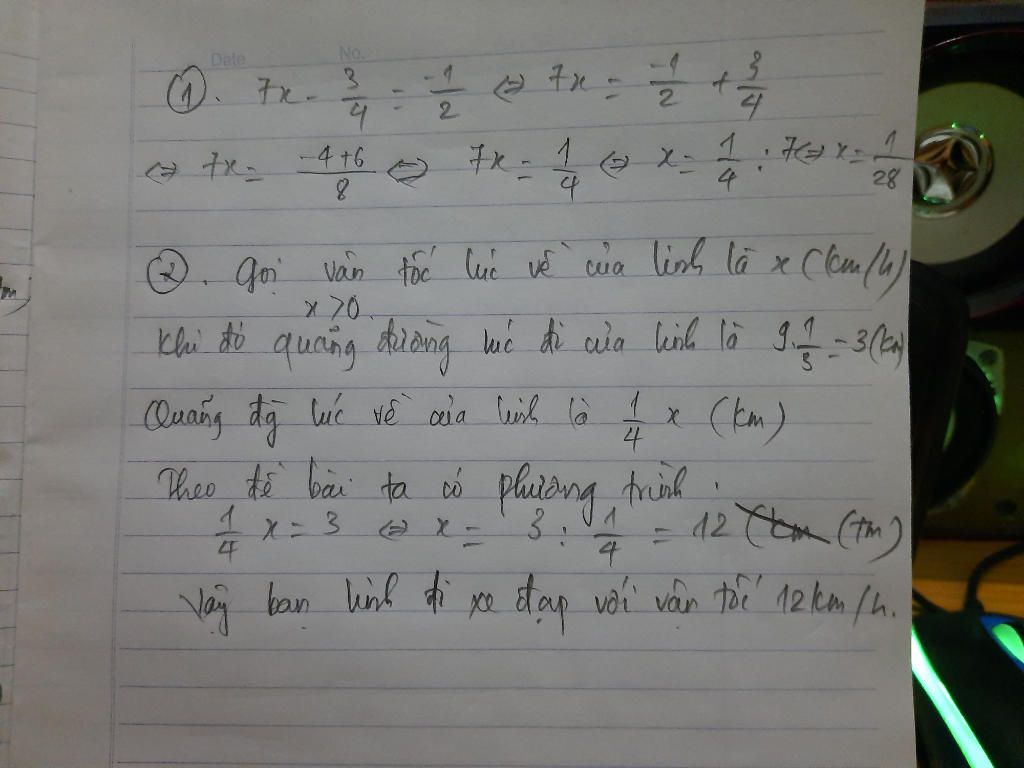 Date No.
①. 7x - 3/4 = -1/2 ⇔ 7x = -1/2 + 3/4
⇔ 7x = (-4+6)/8 ⇔ 7x = 1/4 ⇔ x = 1/4 : 7 ⇔ x = 1/28
②. Gọi vân tốc lúc về của linh là x (km/h)
x > 0.
Khi đó quãng đường lúc đi của linh là 9.1/3 = 3 (km)
Quãng đg lúc về của linh là 1/4 x (km)
Theo đề bài ta có phương trình.
1/4 x = 3 ⇔ x = 3 : 1/4 = 12 (tm)
Vậy bạn linh đi xe đạp với vận tốc 12km/h.